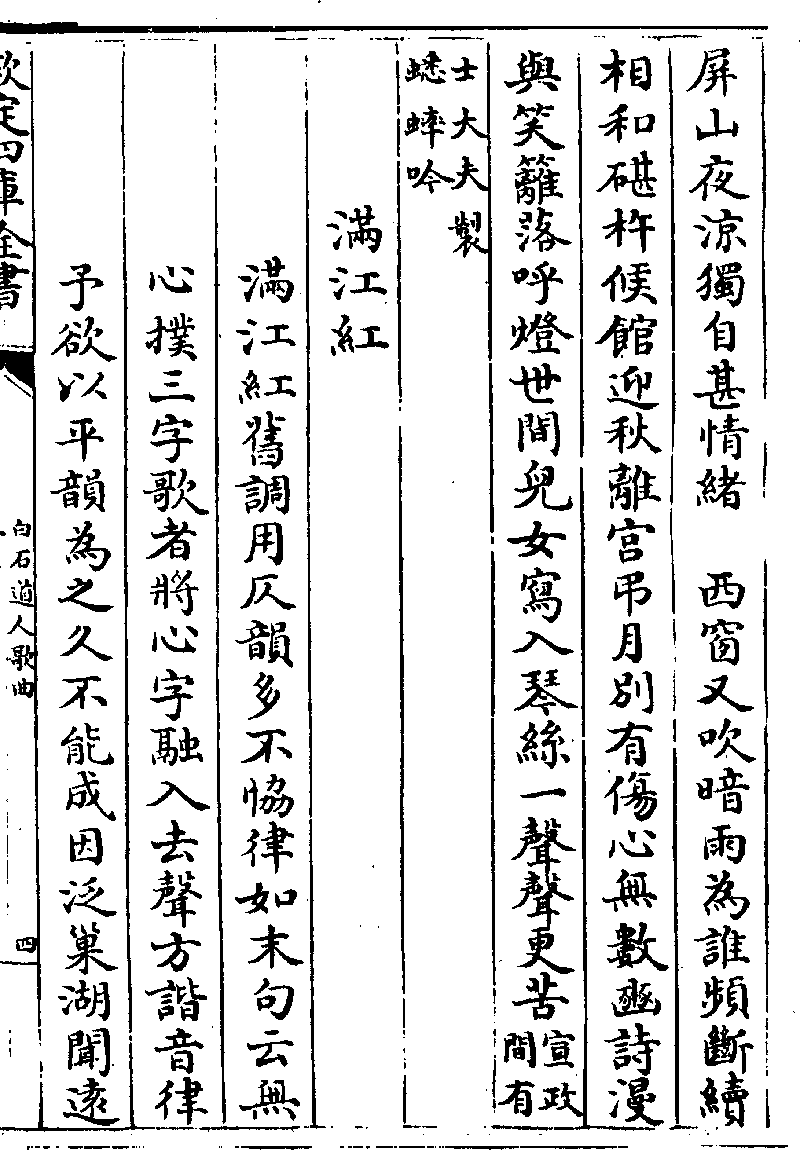 屏山夜涼獨自甚情緒　西窗又吹暗雨為誰頻斷續
相和碪杵候館迎秋離宮弔月別有傷心無數豳詩漫
與笑籬落呼燈世間兒女寫入琴絲一聲聲更苦宣政
間有
士大夫製
蟋蟀吟
滿江紅
滿江紅舊調用仄韻多不恊律如末句云無
心撲三字歌者將心字融入去聲方諧音律
予欲以平韻為之久不能成因泛巢湖聞遠
欽定四庫全書
白石道人歌曲
四